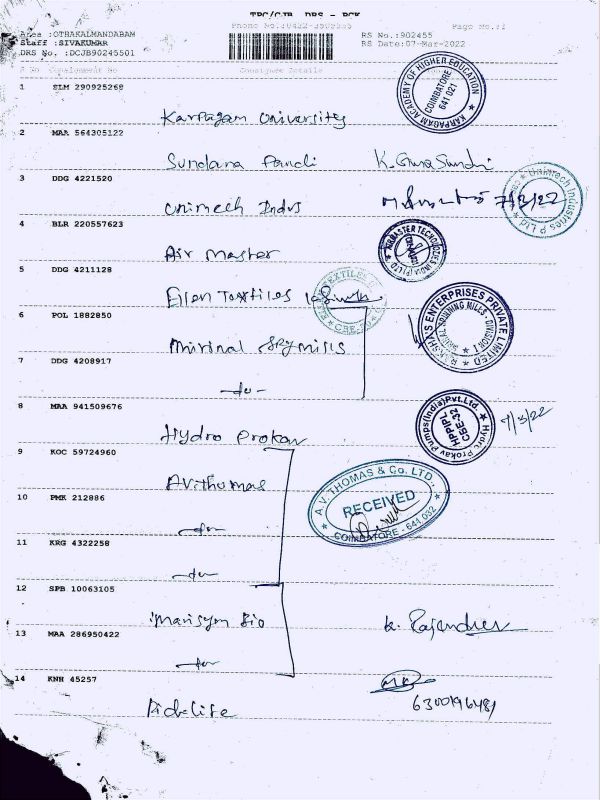 TPC/CJB DRS - PCK
Phone No.:0422-3509595 Page No.:1
Area :OTHAKALMANDABAM RS No.:902455
Staff :SIVAKUMAR RS Date:07-Mar-2022
DRS No. :DCJB90245501
S.No. Consignment No Consignee Details
1 SLM 290925268
Karpagam University
KARPAGAM ACADEMY OF HIGHER EDUCATION COIMBATORE 641 021
2 MAA 564305122
Sundara Pandi K. Guna Sundri
3 DDG 4221520
Unimech Indus 7/3/22
Unimech Industries P Ltd
4 BLR 220557623
Air master
AIRMASTER TECHNOLOGIES INDIA (P) LTD
5 DDG 4211128
Ellen Textiles
TEXTILES CBE
6 POL 1882850
Mirinal Spg mills
ENTERPRISES PRIVATE LIMITED
SPINNING MILLS - DIVISION
7 DDG 4208917
-do-
8 MAA 941509676
Hydro Prokav
Hydro Prokav Pumps(India)Pvt.Ltd. HPPIPL CBE-32
7/3/22
9 KOC 59724960
AVithomas
A.V. THOMAS & Co. LTD. RECEIVED COIMBATORE - 641 032
10 PMK 212886
-do-
11 KRG 4322258
-do-
12 SPB 10063105
Marisym Bio K. Rajendren
13 MAA 286950422
-do-
14 KNH 45257
Pidelife 6300196481